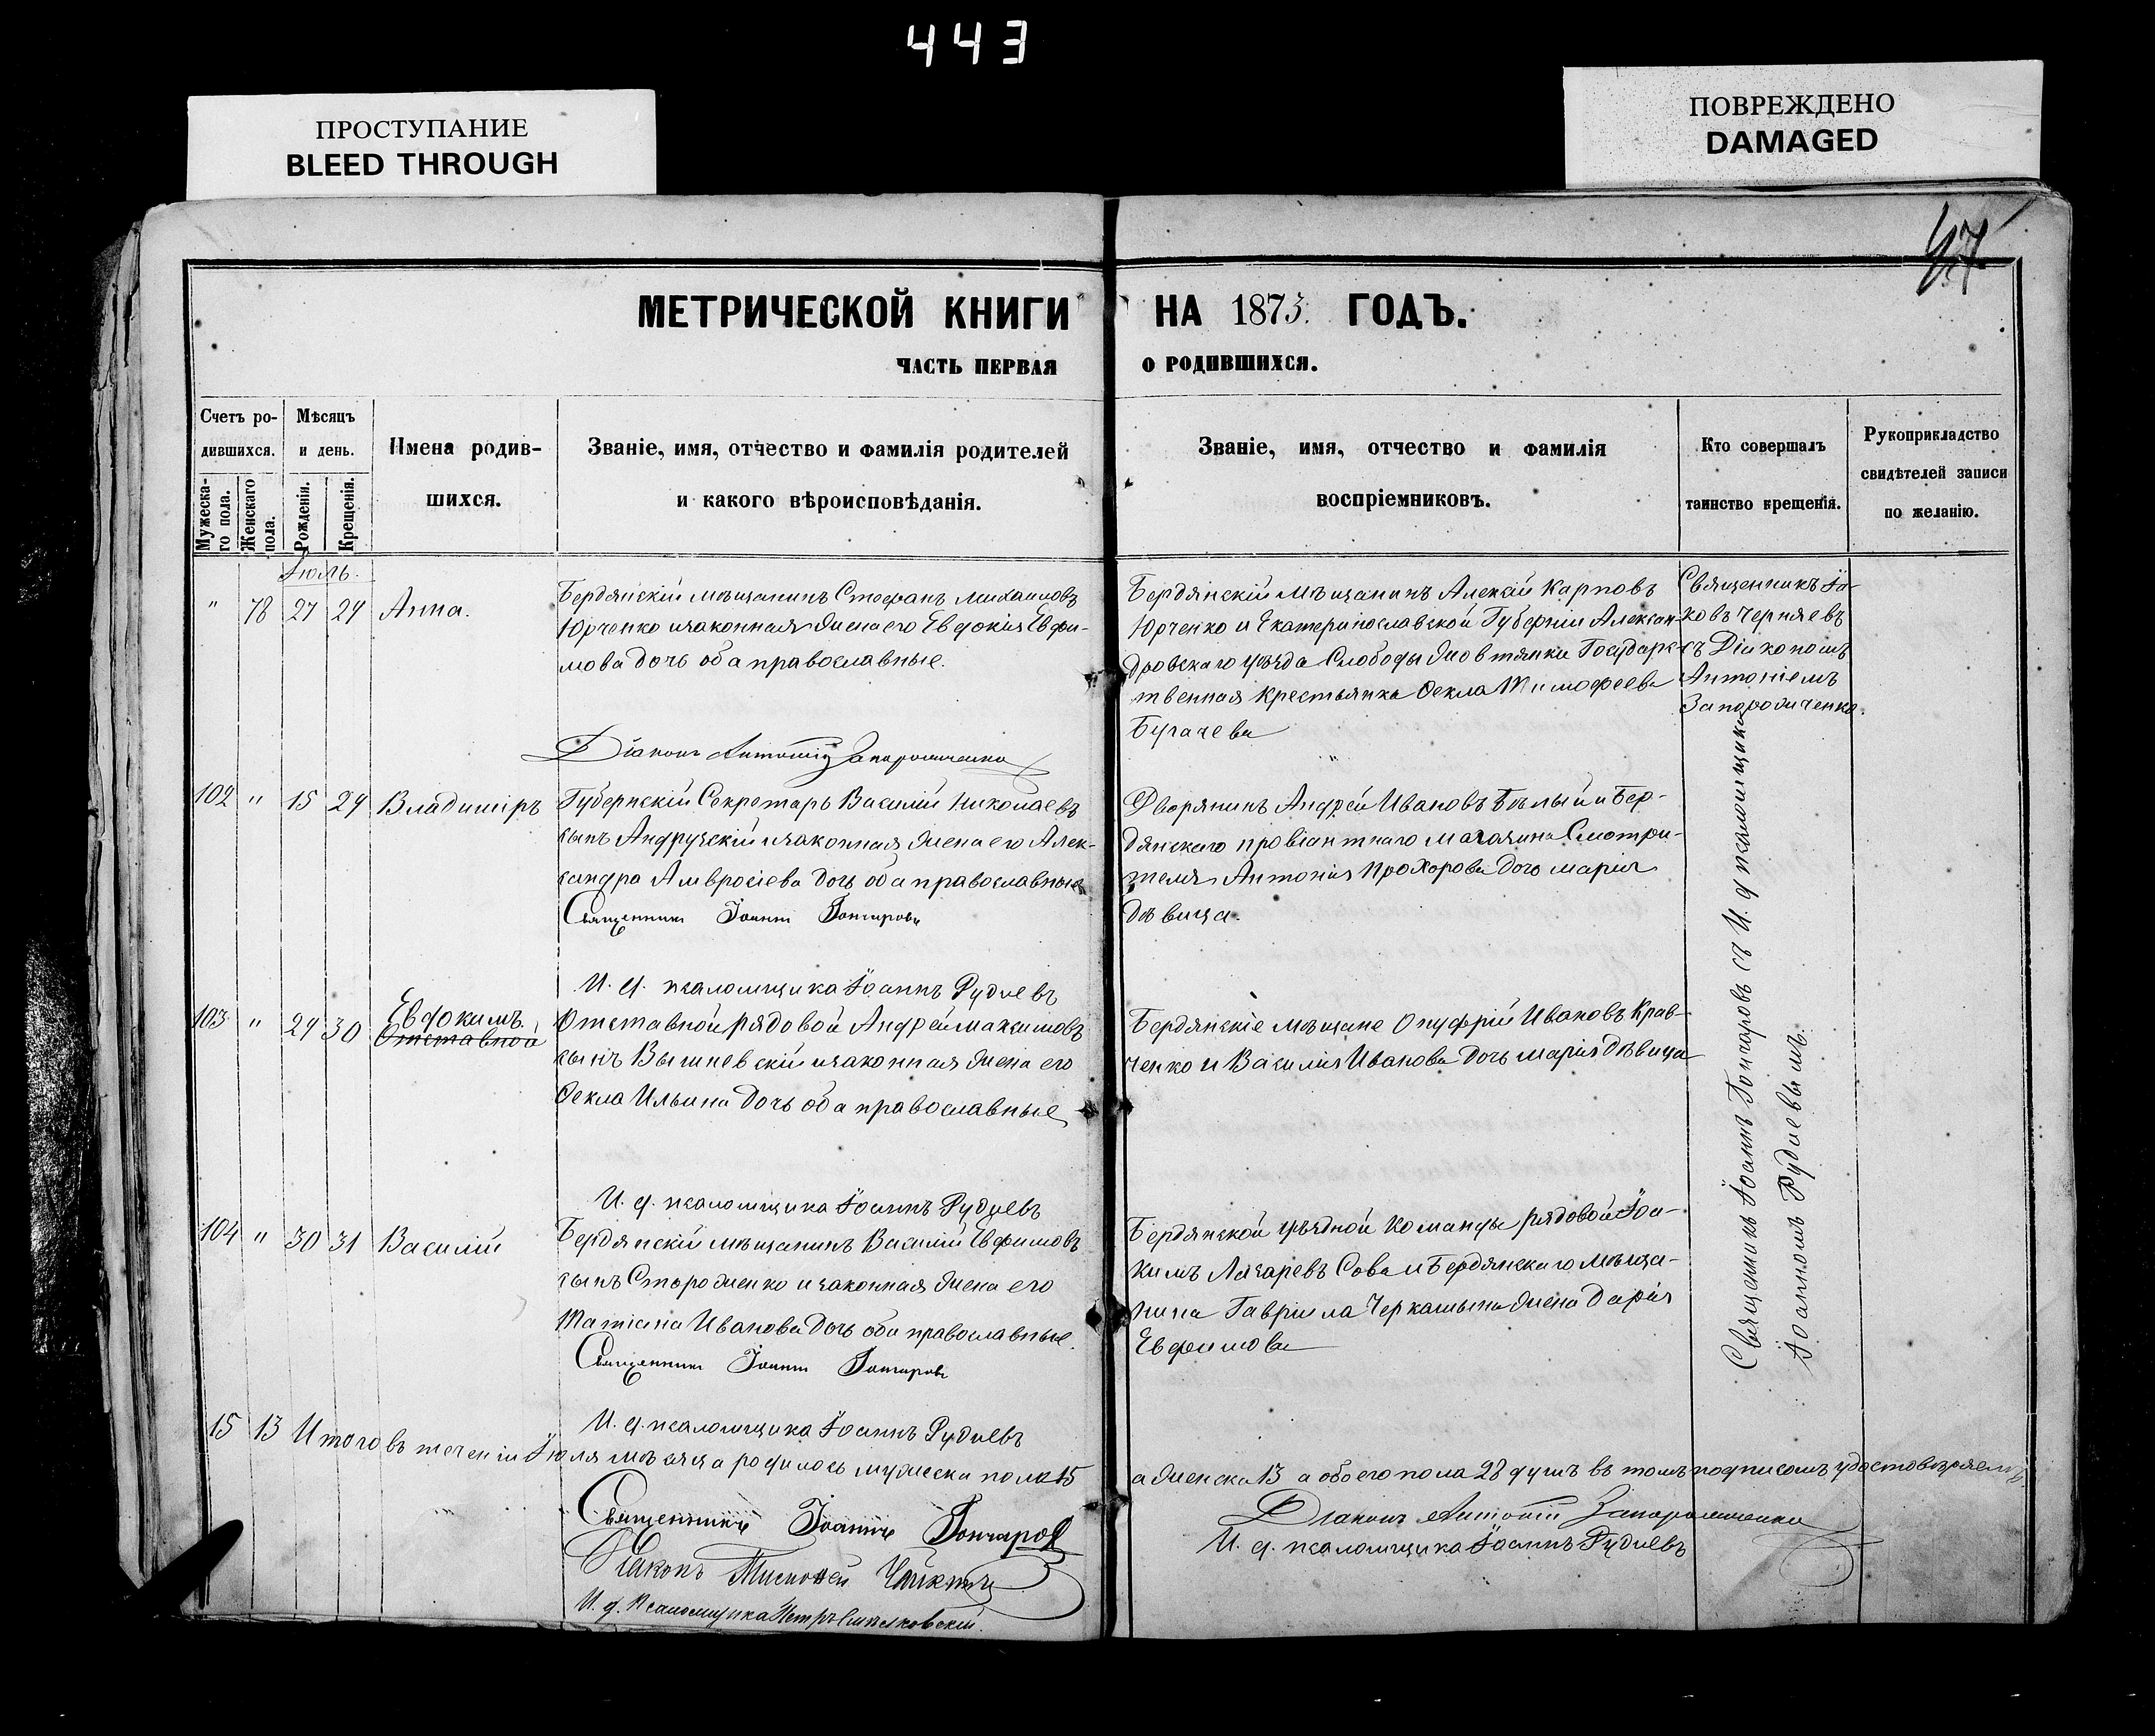 443
ПРОСТУПАНИЕ
BLEED THROUGH
ПОВРЕЖДЕНО
DAMAGED
МЕТРИЧЕСКОЙ КНИГИ НА 1873 ГОДЪ.
ЧАСТЬ ПЕРВАЯ О РОДИВШИХСЯ.
Счетъ ро-
дившихся.
Мужеска-
го пола.
Женскаго
пола.
Мѣсяцъ
и день.
Рожденія.
Крещенія.
Имена родив-
шихся.
Званіе, имя, отчество и фамилія родителей
и какого вѣроисповѣданія.
Званіе, имя, отчество и фамилія
воспріемниковъ.
Кто совершалъ
таинство крещенія.
Рукоприкладство
свидѣтелей записи
по желанію.
Іюль.
" 78 27 29 Анна.
Бердянскій мѣщанинъ Стефанъ Михаиловъ
Юрченко изаконная жена его Евдокія Евфи-
мова дочь оба православные.
Діаконъ Антоній Запорожченко
Бердянскій мѣщанинъ Алексій Карповъ
Юрченко и Екатеринославской Губерніи Алексан-
дровскаго уѣзда Слободы Жовтянки Государс-
твенная крестьянка Ѳекла Тимофеева
Бугачева
Священникъ Іа-
ковъ Черняевъ
съ Діакономъ
Антоніемъ
Запорожченко.
102 " 15 29 Владиміръ
Губернскій Секретарь Василій Николаевъ
сынъ Андрузскій изаконная жена его Алек-
сандра Амвросіева дочь оба православные
Священникъ Іоаннъ Гончаровъ
И. д. псаломщика Іоаннъ Рудиевъ
Дворянинъ Андрей Ивановъ Бѣлый и Бер-
дянскаго провіантнаго магазина Смотри-
теля Антонія Прохорова дочь Марія
дѣвица.
103 " 29 30 Евдокимъ.
Отставной
Отставной рядовой Андрей Максимовъ
сынъ Вышневскій изаконная жена его
Ѳекла Ильина дочь оба православные
И. д. псаломщика Іоаннъ Рудиевъ
Бердянскіе мѣщане Онуфрій Ивановъ Крав-
ченко и Василія Иванова дочь Марія дѣвица
104 " 30 31 Василій
Бердянскій мѣщанинъ Василій Евфимовъ
сынъ Стороженко изаконная жена его
Татіана Иванова дочь оба православные.
Священникъ Іоаннъ Гончаровъ
И. д. псаломщика Іоаннъ Рудиевъ
Бердянской уѣздной Команды рядовой Іоа-
кимъ Лазаревъ Сова и Бердянскаго мѣща-
нина Гавріила Черкашына жена Дарія
Евфимова
Священникъ Іоаннъ Гончаровъ съ И. д псаломщика
Іоанномъ Рудиевымъ.
15 13 Итого въ теченіи Іюля мѣсяца родилось мужеска пола 15 а женска 13 а обоего пола 28 душъ въ томъ подписомъ удостовѣряемъ
Священникъ Іоаннъ Гончаровъ
Діаконъ Антоній Запорожченко
И. д. псаломщика Іоаннъ Рудиевъ
И. д. Псаломщика Петръ